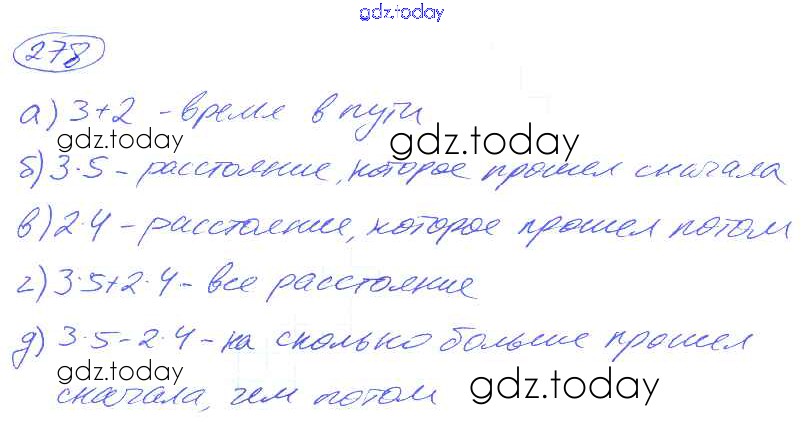 gdz.today
278
а) 3+2 - время в пути
gdz.today
gdz.today
б) 3·5 - расстояние, которое прошел сначала
в) 2·4 - расстояние, которое прошел потом
г) 3·5+2·4 - все расстояние
д) 3·5-2·4 - на сколько больше прошел
gdz.today
gdz.today
сначала, чем потом